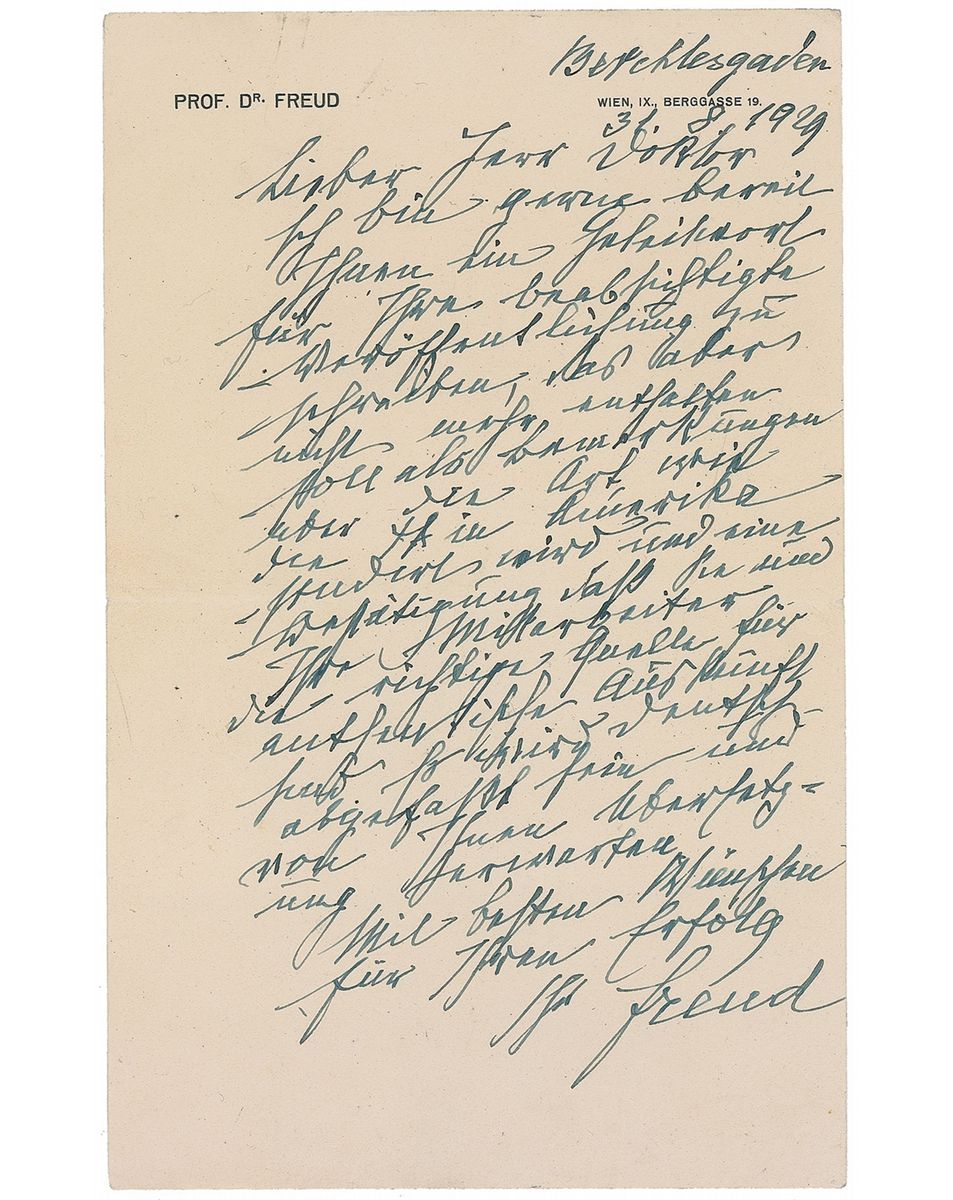 Berchtesgaden
PROF. DR. FREUD
WIEN, IX., BERGGASSE 19.
31. 8. 1929
Lieber Herr Doktor
Ich bin gerne bereit
Ihnen ein Geleitwort
für Ihre beabsichtigte
Veröffentlichung zu
schreiben, das aber
nicht mehr enthalten
soll als Bemerkungen
über die Art wie
die ΨA in Amerika
studirt wird und eine
Bestätigung daß Sie und
Ihre Mitarbeiter
die richtige Quelle für
authentische Auskunft
sind. Es wird deutsch
abgefaßt sein und
von Ihnen Übersetz=
ung erwarten
Mit besten Wünschen
für Ihren Erfolg
Ihr Freud